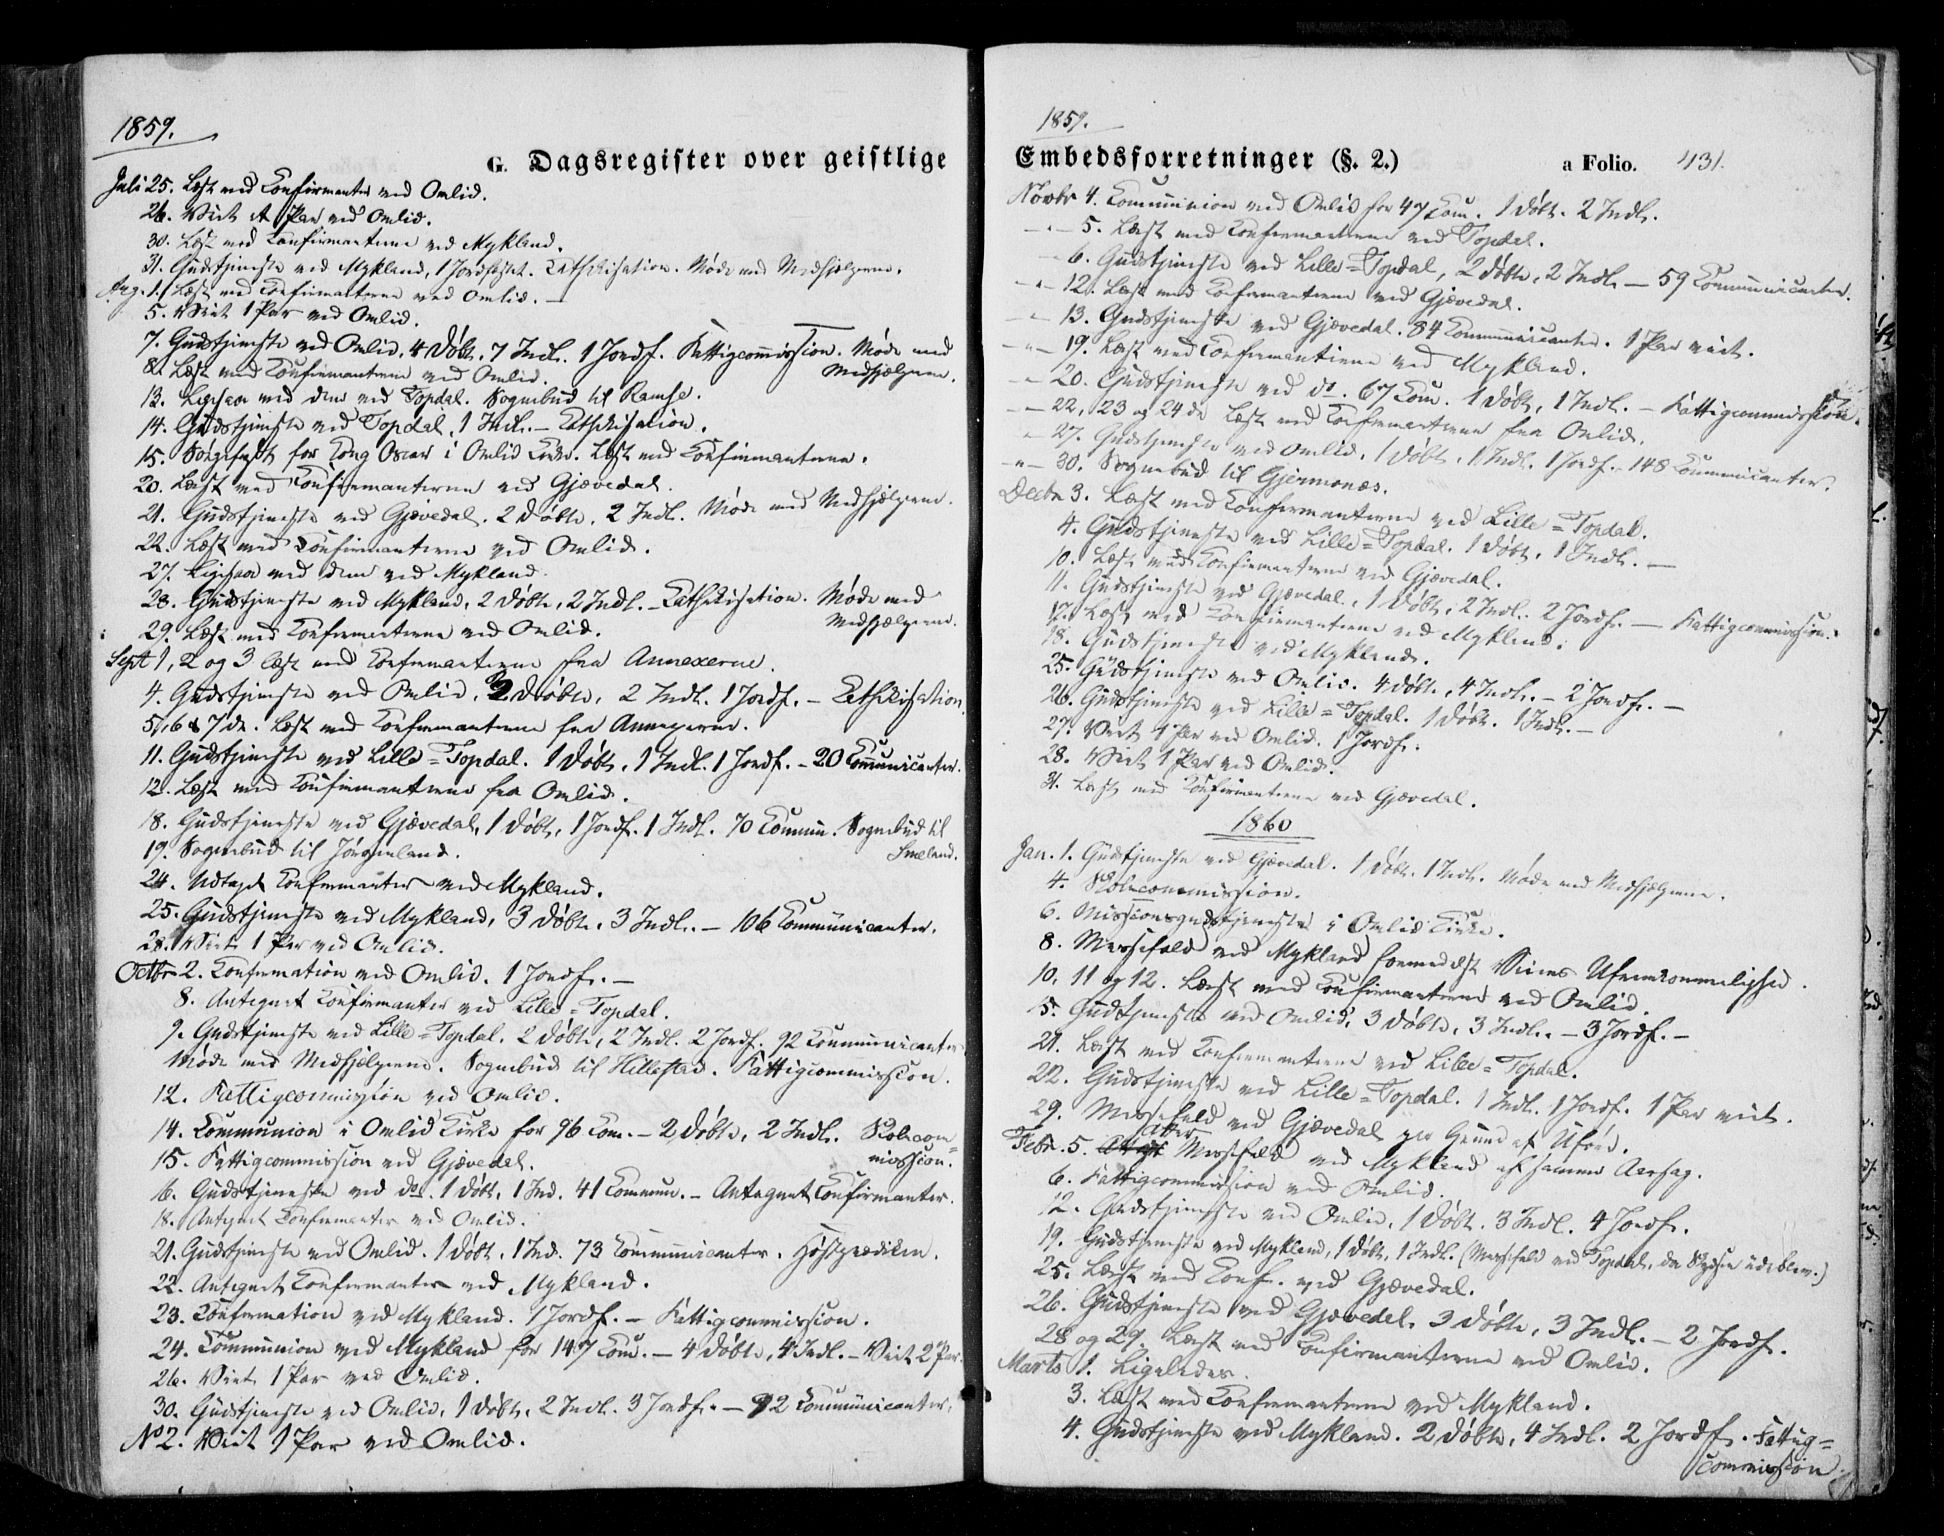 1859.
G. Dagsregister over geistlige
Juli 25. Læst med Confirmanter ved Omlid.
26. Viet et Par ved Omlid.
30. Læst med Confirmanterne ved Mykland.
31. Gudstjeneste ved Mykland, 1 Jordfæstet. Cathekisation. Møde med Medhjelperne.
Aug. 1. Læst med Confirmanterne ved Omlid. —
5. Viet 1 Par ved Omlid.
7. Gudstjeneste ved Omlid. 4 døbte, 7 Indl. 1 Jordf. Fattigcommission. Møde med
Medhjelperne.
8. Læst med Confirmanterne ved Omlid.
13. Ligesaa med dem ved Topdal. Sognebud til Ramse.
14. Gudstjeneste ved Topdal, 1 Indl. — Cathekisation.
15. Sørgefest for Kong Oscar i Omlid Kirke. Læst med Confirmanterne.
20. Læst med Confirmanterne ved Gjævedal.
21. Gudstjeneste ved Gjævedal. 2 døbte, 2 Indl. Møde med Medhjelperne.
22. Læst med Confirmanterne ved Omlid.
27. Ligesaa med dem ved Mykland.
28. Gudstjeneste ved Mykland, 2 døbte, 2 Indl. — Cathekisation. Møde med
Medhjelperne.
29. Læst med Confirmanterne ved Omlid.
Sept 1, 2 og 3 læst med Confirmanterne fra Annexerne.
4. Gudstjeneste ved Omlid. 2 døbte, 2 Indl. 1 Jordf. — Cathekisation.
5, 6 & 7de. Læst med Confirmanterne fra Annexerne.
11. Gudstjeneste ved Lille-Topdal. 1 døbt, 1 Indl. 1 Jordf. — 20 Communicanter.
12. Læst med Confirmanterne fra Omlid.
18. Gudstjeneste ved Gjævedal, 1 døbt, 1 Jordf. 1 Indl. 70 Commun. Sognebud til
Smeland.
19. Sognebud til Jørgenland.
24. Udtaget Confirmanter ved Mykland.
25. Gudstjeneste ved Mykland, 3 døbte, 3 Indl. — 106 Communicanter.
28. Viet 1 Par ved Omlid.
Octbr 2. Confirmation ved Omlid. 1 Jordf. —
8. Antegnet Confirmanter ved Lille-Topdal.
9. Gudstjeneste ved Lille-Topdal. 2 døbte, 2 Indl. 2 Jordf. 92 Communicanter
Møde med Medhjelperne. Sognebud til Hillestad. Fattigcommission.
12. Fattigcommission ved Omlid.
14. Communion i Omlid Kirke for 96 Com. — 2 døbte, 2 Indl. Skolecom-
mission.
15. Fattigcommission ved Gjævedal.
16. Gudstjeneste ved do. 1 døbt, 1 Ind. 41 Commun. — Antegnet Confirmanter.
18. Antegnet Confirmanter ved Omlid.
21. Gudstjeneste ved Omlid. 1 døbt, 1 Ind. 73 Communicanter. Høstprædiken.
22. Antegnet Confirmanter ved Mykland.
23. Confirmation ved Mykland. 1 Jordf. — Fattigcommission.
24. Communion ved Mykland for 147 Com. — 4 døbte, 4 Indl. — Viet 2 Par.
26. Viet 1 Par ved Omlid.
30. Gudstjeneste ved Omlid, 1 døbt, 2 Indl. 3 Jordf. — 92 Communicanter.
No 2. Viet 1 Par ved Omlid.
1859.
Embedsforretninger (§. 2.) a Folio. 431.
Novbr 4. Communion ved Omlid for 47 Com. 1 døbt. 2 Indl.
5. Læst med Confirmanterne ved Topdal.
6. Gudstjeneste ved Lille-Topdal, 2 døbte, 2 Indl. — 59 Communicanter.
12. Læst med Confirmanterne ved Gjævedal.
13. Gudstjeneste ved Gjævedal. 84 Communicanter. 1 Par viet.
19. Læst med Confirmantierne ved Mykland.
20. Gudstjeneste ved do. 67 Com. 1 døbt, 1 Indl. — Fattigcommission.
22, 23 og 24de Læst med Confirmanterne fra Omlid.
27. Gudstjeneste ved Omlid. 1 døbt. 1 Indl. 1 Jordf. 148 Communicanter.
30. Sognebud til Gjermonæs.
Decbr 3. Læst med Confirmanterne ved Lille-Topdal.
4. Gudstjeneste ved Lille-Topdal. 1 døbt, 1 Indl. —
10. Læst med Confirmanterne ved Gjævedal.
11. Gudstjeneste ved Gjævedal, 1 døbt, 2 Indl. 2 Jordf. — Fattigcommission.
17. Læst med Confirmanterne ved Mykland.
18. Gudstjeneste ved Mykland.
25. Gudstjeneste ved Omlid. 4 døbte, 4 Indl. — 2 Jordf. —
26. Gudstjeneste ved Lille-Topdal. 1 døbt. 1 Indl. —
27. Viet 1 Par ved Omlid. 1 Jordf.
28. Viet 1 Par ved Omlid.
31. Læst med Confirmanterne ved Gjævedal.
1860
Jan. 1. Gudstjeneste ved Gjævedal. 1 døbt. 1 Indl. Møde med Medhjelperne.
4. Skolecommission.
6. Missionsgudstjeneste i Omlid Kirke.
8. Messefald ved Mykland formedelst Veiens Ufremkommelighed.
10, 11 og 12. Læst med Confirmanterne ved Omlid.
15. Gudstjeneste ved Omlid, 3 døbte, 3 Indl. — 3 Jordf. —
21. Læst med Confirmanterne ved Lille-Topdal.
22. Gudstjeneste ved Lille-Topdal. 1 Indl. 1 Jordf. 1 Par viet.
29. Messefald ved Gjævedal paa Grund af Uføre.
Febr. 5. atter Messefald ved Mykland af samme Aarsag.
6. Fattigcommission ved Omlid.
12. Gudstjeneste ved Omlid, 1 døbt. 3 Indl. 4 Jordf.
19. Gudstjeneste ved Mykland, 1 døbt, 1 Indl. (Messefald ved Topdal, da Skydsen udeblev.)
25. Læst med Conf. ved Gjævedal.
26. Gudstjeneste ved Gjævedal. 3 døbte, 3 Indl. — 2 Jordf.
28 og 29. Læst med Confirmanterne ved Omlid.
Marts 1. Ligeledes.
3. Læst med Confirmanterne ved Mykland.
4. Gudstjeneste ved Mykland. 2 døbte, 4 Indl. 2 Jordf. Fattig-
commission